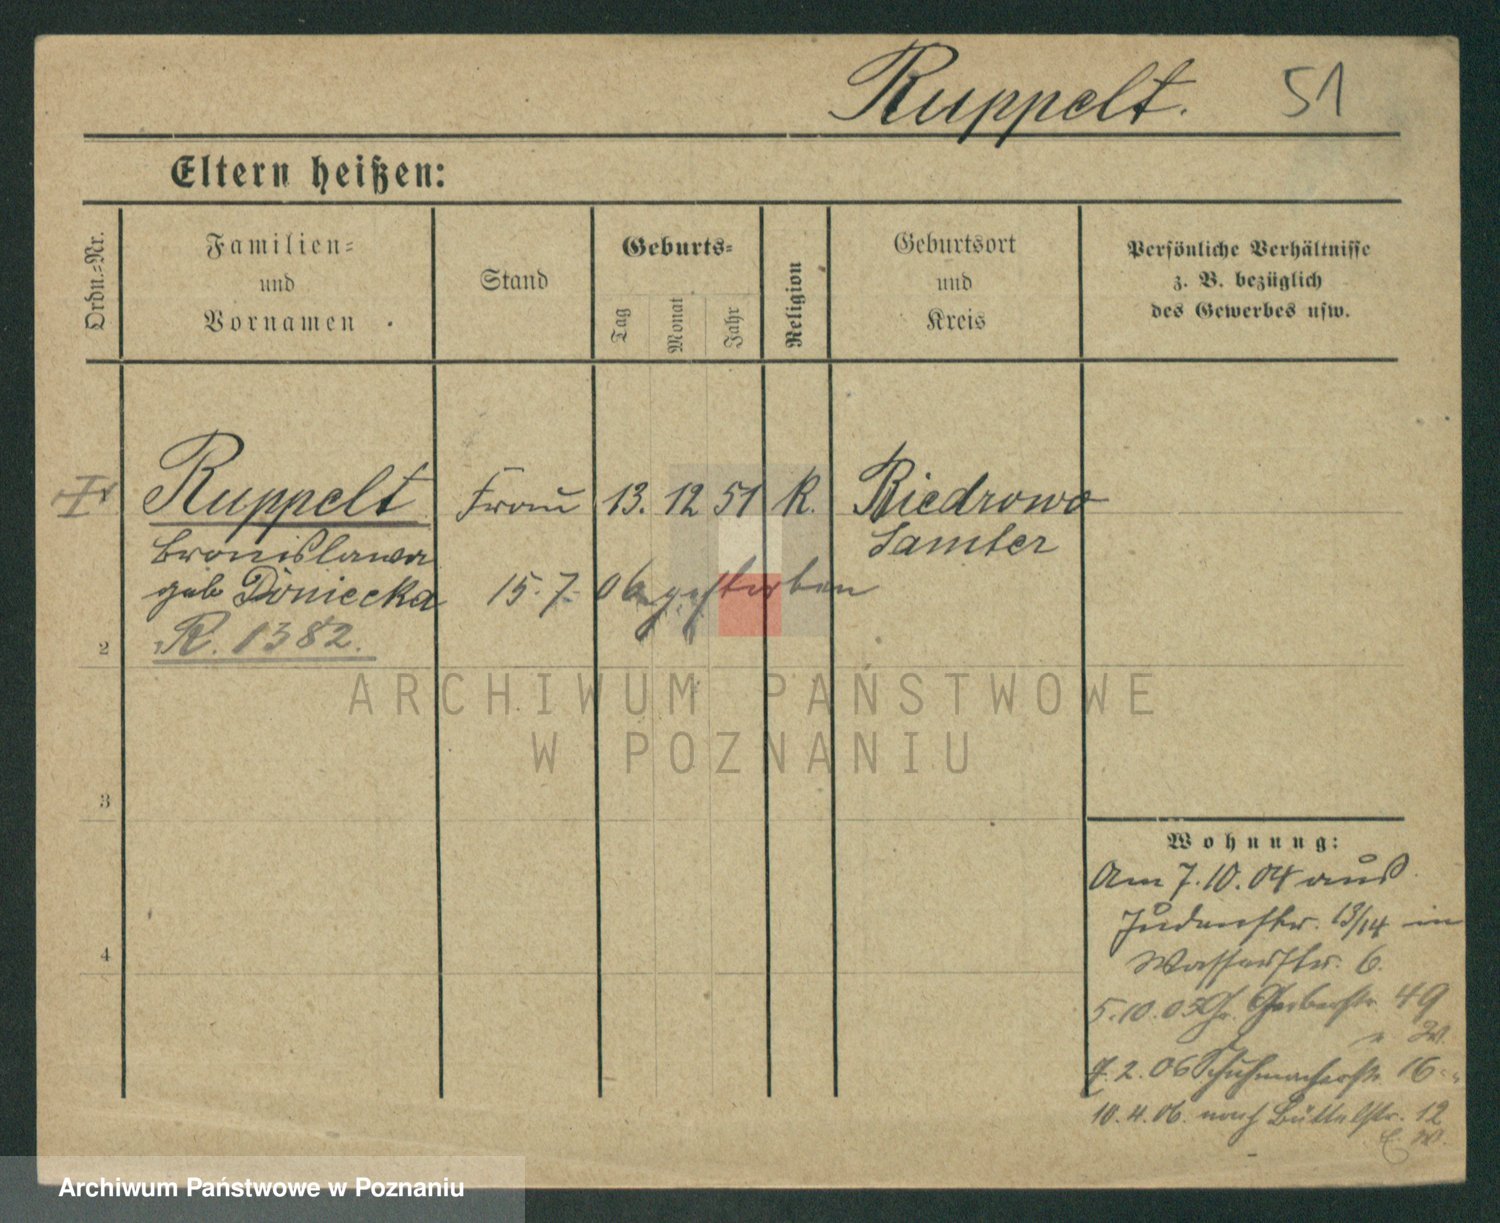 Ruppelt. 51
Eltern heißen:
Ordn.=Nr.
Familien=
und
Vornamen
Stand
Geburts=
Tag
Monat
Jahr
Religion
Geburtsort
und
Kreis
Persönliche Verhältnisse
z. B. bezüglich
des Gewerbes usw.
Ruppelt Frau 13. 12 51 K. Biedrowo
Bronislawa Samter
geb Doniecka 15. 7. 06 gestorben
R. 1382.
2
ARCHIWUM PAŃSTWOWE
W POZNANIU
3
4
Wohnung:
Am 7. 10. 04 aus
Judenstr. 13/14 in
Wasserstr. 6.
5. 10. 05 Gr. Gerberstr. 49
7. 2. 06 Schuhmacherstr. 16
10. 4. 06. nach Büttelstr. 12
Archiwum Państwowe w Poznaniu